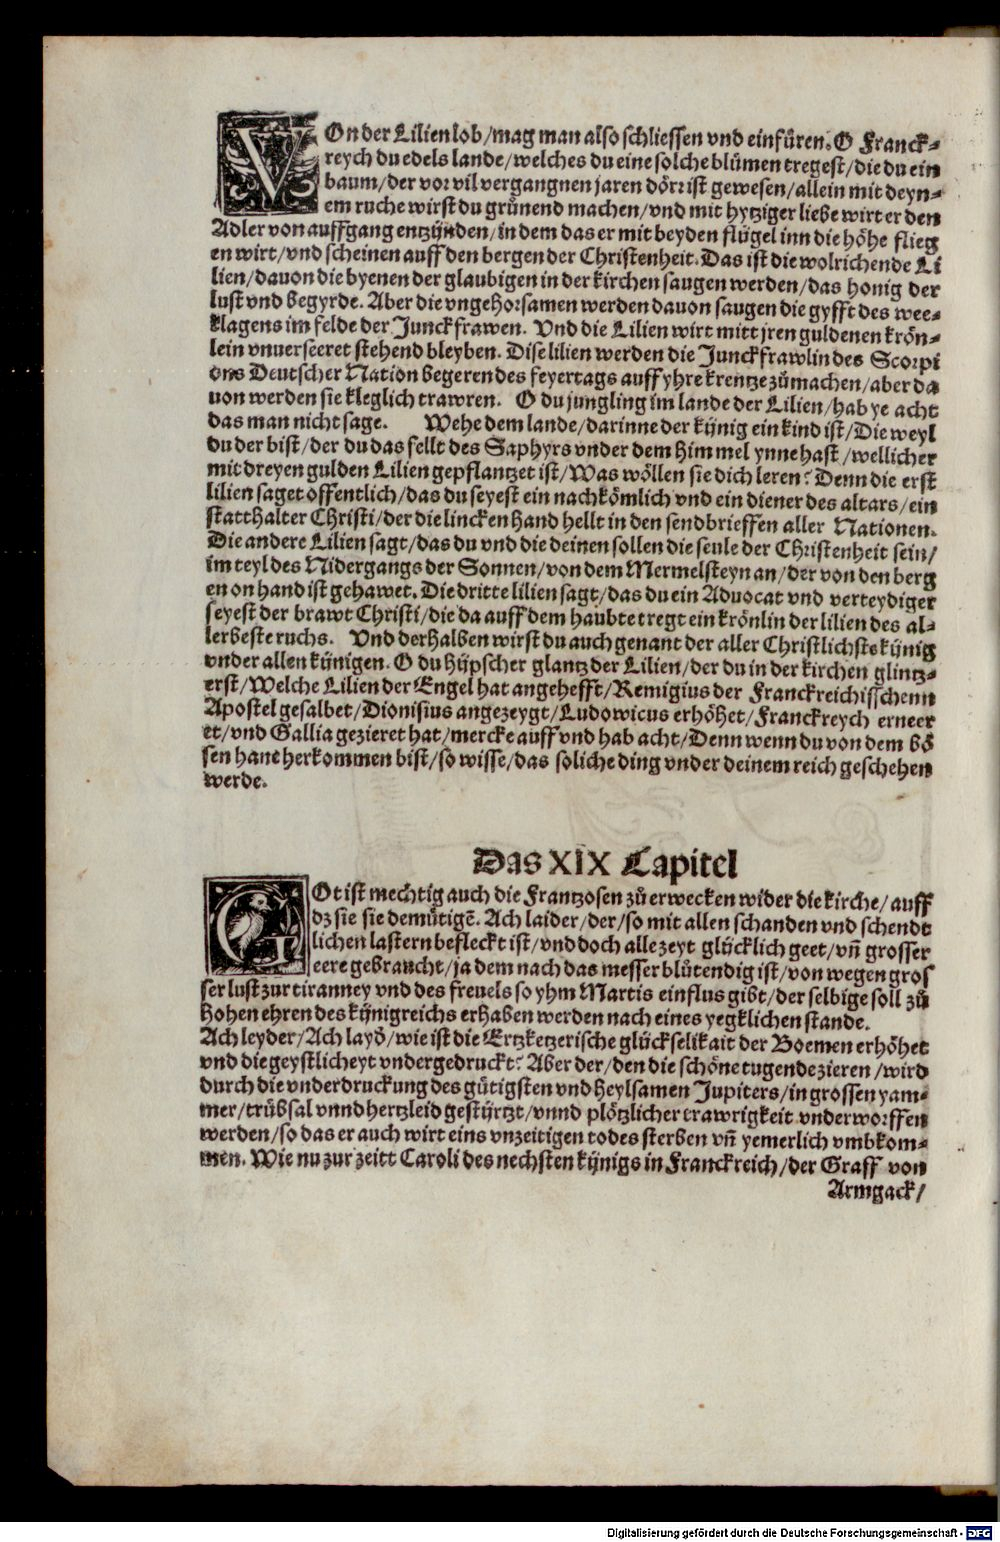 VOn der Lilien lob/mag man also schliessen vnd einfüren. O Franck⸗
reych du edels lande/welches du eine solche blůmen tregest/die du ein
baum/der vor vil vergangnen jaren dörr ist gewesen/allein mit deyn⸗
em ruche wirst du grůnend machen/vnd mit hytziger liebe wirt er den
Adler von auffgang entzünden/in dem das er mit beyden flügel inn die höhe flieg
en wirt/vnd scheinen auff den bergen der Christenheit. Das ist die wolrichende Li
lien/dauon die byenen der glaubigen in der kirchen saugen werden/das honig der
lust vnd begyrde. Aber die vngehorsamen werden dauon saugen die gyfft des wee⸗
klagens im felde der Junckfrawen. Vnd die Lilien wirt mitt jren guldenen krön⸗
lein vnuerseeret stehend bleyben. Dise lilien werden die Junckfrawlin des Scorpi
ons Deutscher Nation begeren des feyertags auff yhre krentze zůmachen/aber da
uon werden sie kleglich trawren. O du jungling im lande der Lilien/hab ye acht
das man nicht sage. Wehe dem lande/darinne der künig ein kind ist/Die weyl
du der bist/der du das fellt des Saphyrs vnder dem himmel ynne hast/wellicher
mit dreyen gulden Lilien gepflantzet ist/Was wöllen sie dich leren? Denn die erst
lilien saget offentlich/das du seyest ein nachkömlich vnd ein diener des altars/ein
statthalter Christi/der die lincken hand hellt in den sendbrieffen aller Nationen.
Die andere Lilien sagt/das du vnd die deinen sollen die seule der Christenheit sein/
im teyl des Nidergangs der Sonnen/von dem Mermelsteyn an/der von den berg
en on hand ist gehawet. Die dritte lilien sagt/das du ein Aduocat vnd verteydiger
seyest der brawt Christi/die da auff dem haubte tregt ein krönlin der lilien des al⸗
lerbeste ruchs. Vnd derhalben wirst du auch genant der aller Christlichste künig
vnder allen künigen. O du hüpscher glantz der Lilien/der du in der kirchen glintz⸗
erst/Welche Lilien der Engel hat angehefft/Remigius der Franckreichisschenn
Apostel gesalbet/Dionisius angezeygt/Ludowicus erhöhet/Franckreych erneer
et/vnd Gallia gezieret hat/mercke auff vnd hab acht/Denn wenn du von dem bö
sen hane herkommen bist/so wisse/das soliche ding vnder deinem reich geschehen
werde.
Das XIX Capitel
GOt ist mechtig auch die Frantzosen zů erwecken wider die kirche/auff
dz sie sie demůtigē. Ach laider/der/so mit allen schanden vnd schendt
lichen lastern befleckt ist/vnd doch alle zeyt glücklich geet/vn̄ grosser
eere gebraucht/ja dem nach das messer blůtendig ist/von wegen gros
ser lust zur tiranney vnd des freuels so yhm Martis einflus gibt/der selbige soll zů
hohen ehren des künigreichs erhaben werden nach eines yegklichen stande.
Ach leyder/Ach layd/wie ist die Ertzketzerische glückselikait der Boemen erhöhet
vnd die geystlicheyt vndergedruckt? Aber der/den die schöne tugende zieren/wird
durch die vnderdruckung des gütigsten vnd heylsamen Jupiters/in grossen yam⸗
mer/trübsal vnnd hertzleid gestürtzt/vnnd plötzlicher trawrigkeit vnderworffen
werden/so das er auch wirt eins vnzeitigen todes sterben vn̄ yemerlich vmbkom⸗
men. Wie nu zur zeitt Caroli des nechsten künigs in Franckreich/der Graff von
Armgack/
Digitalisierung gefördert durch die Deutsche Forschungsgemeinschaft - DFG